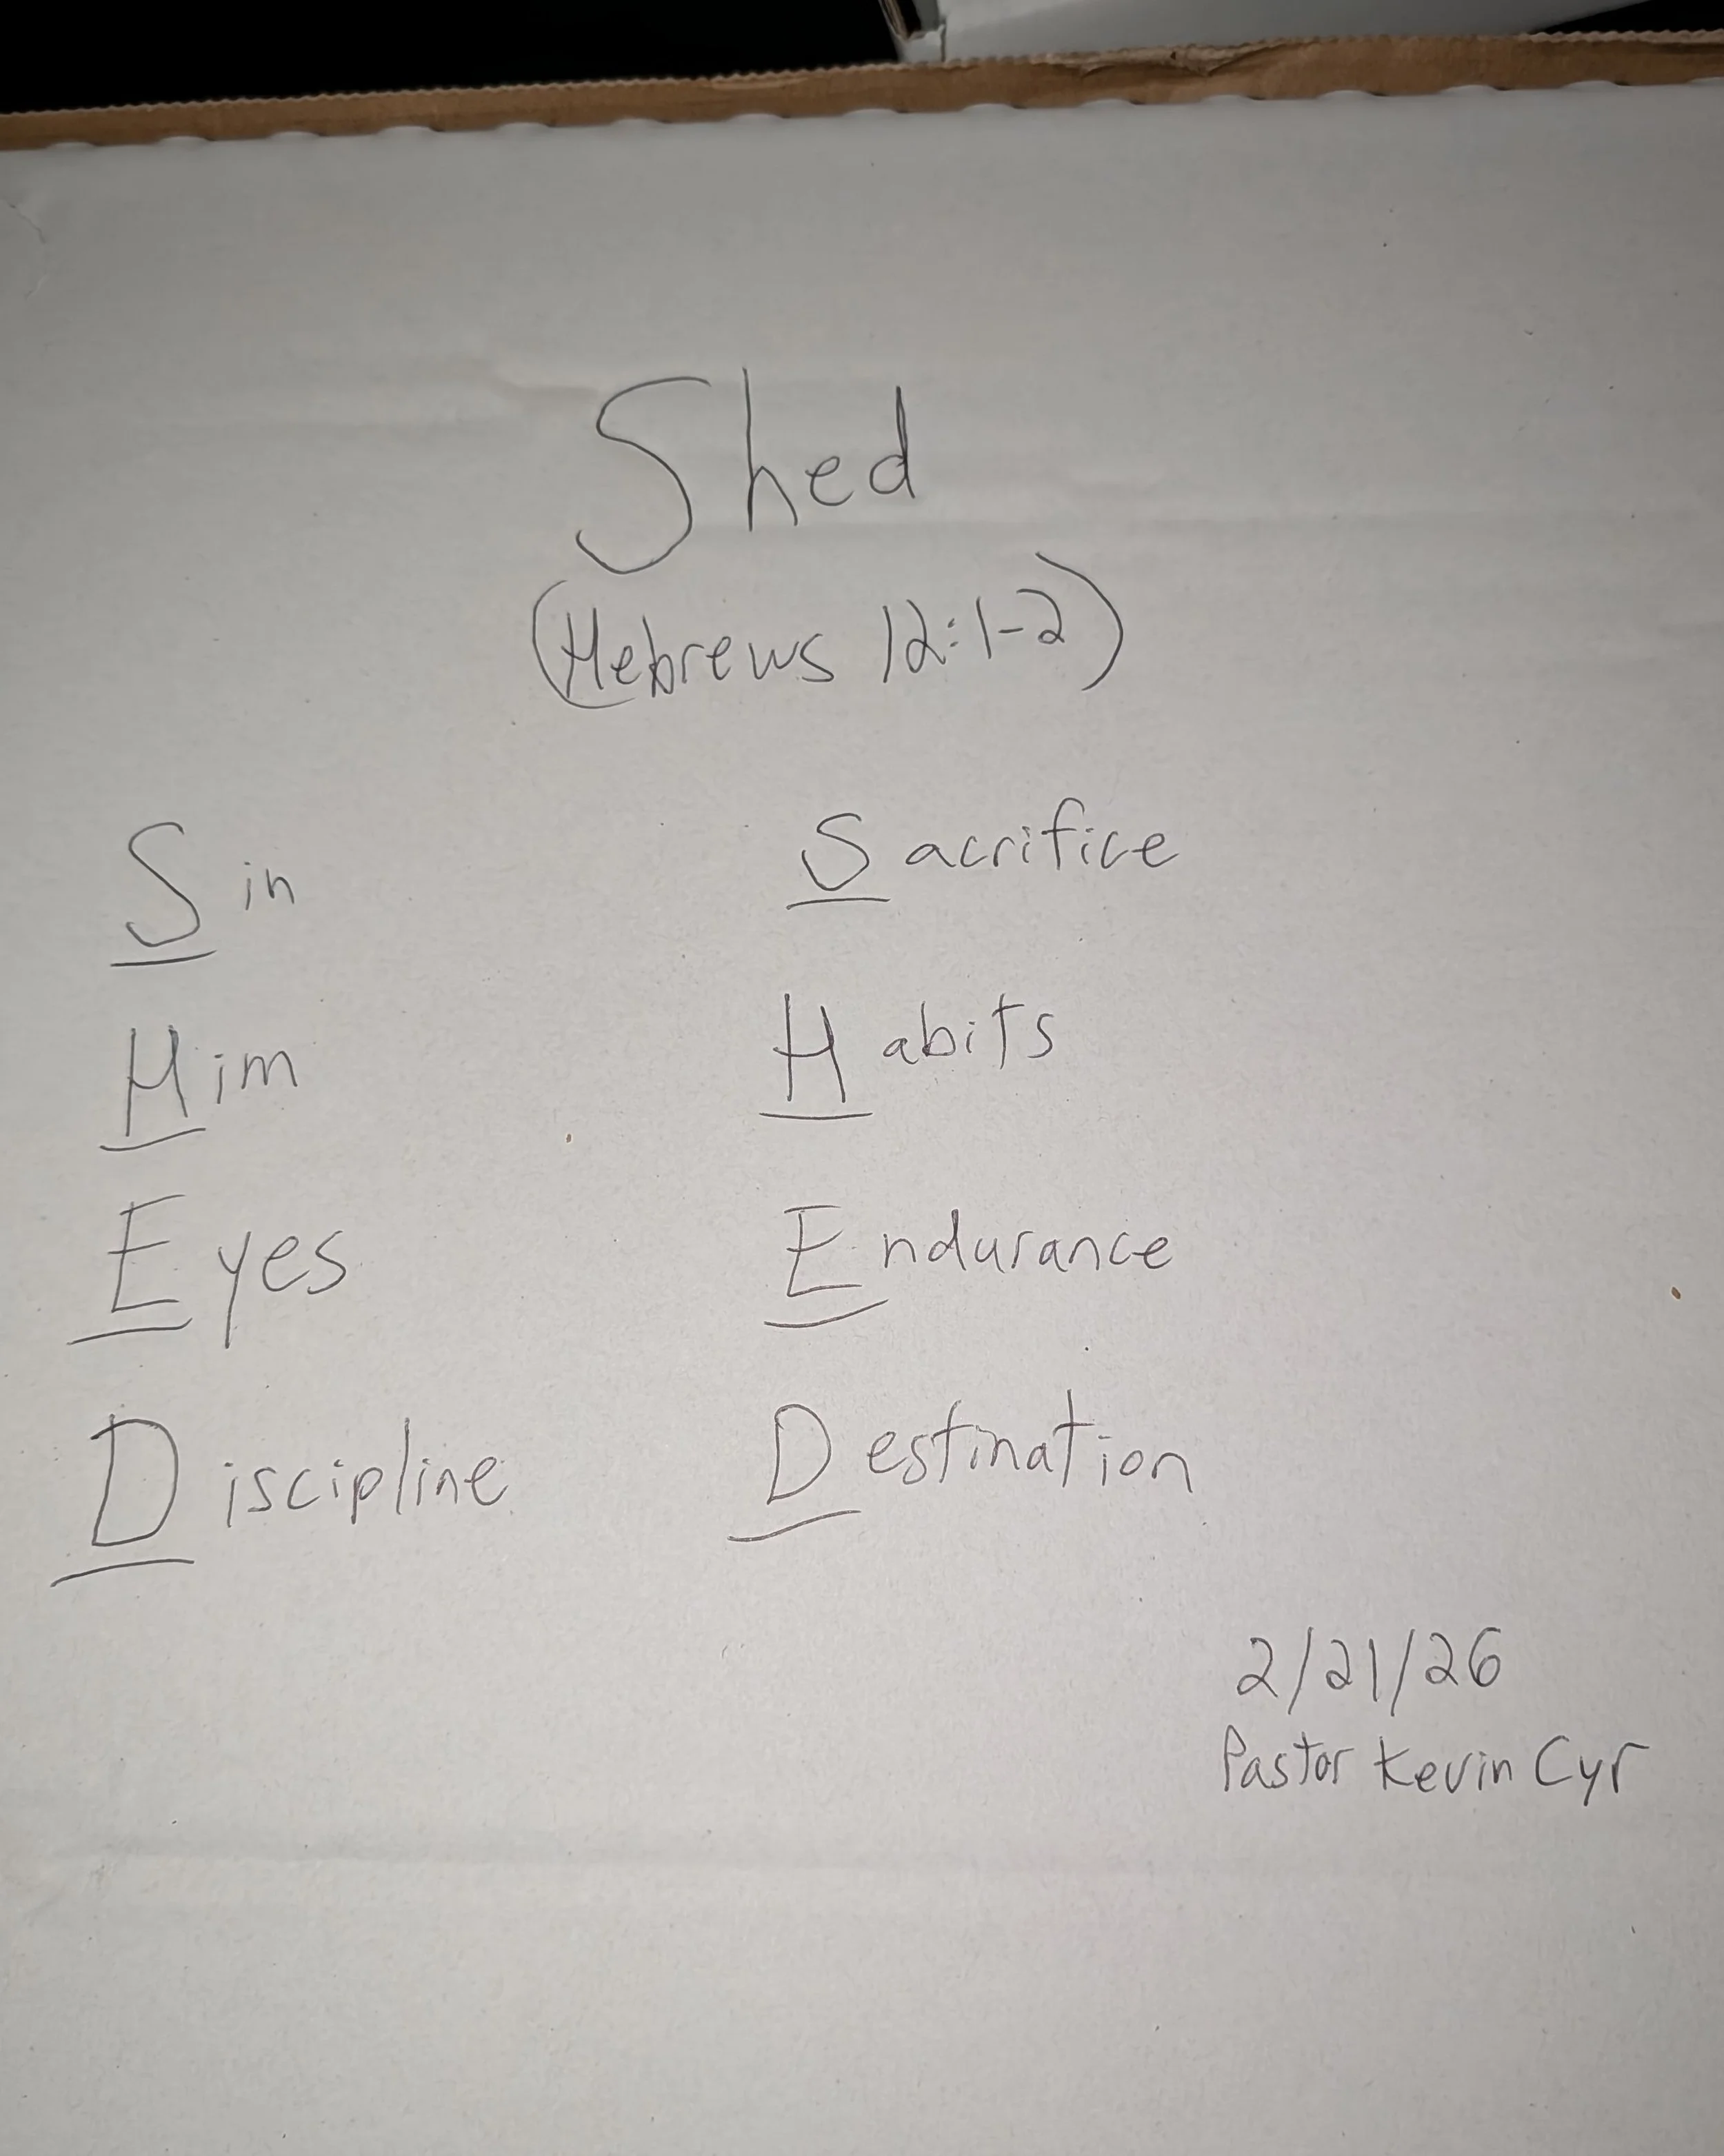 Shed
(Hebrews 12:1-2)
Sin
Him
Eyes
Discipline
Sacrifice
Habits
Endurance
Destination
2/21/26
Pastor Kevin Cyr